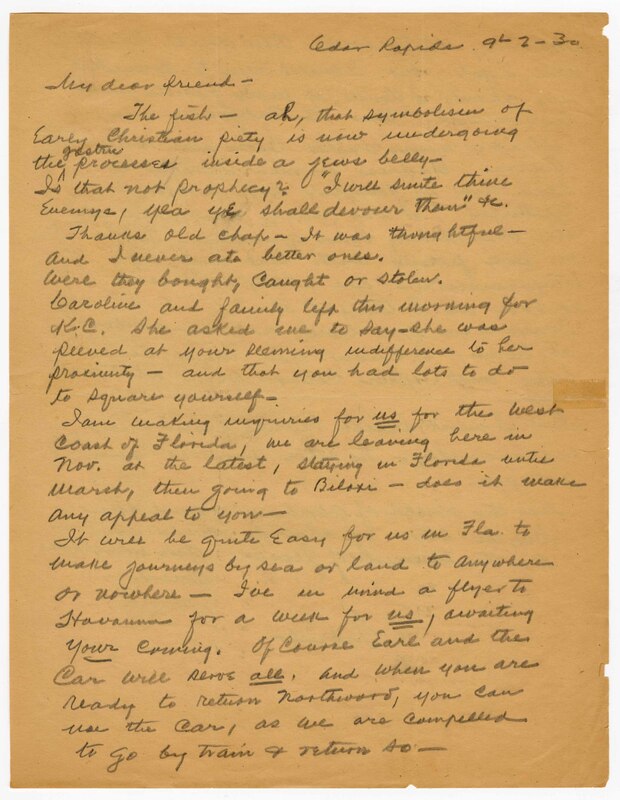 Cedar Rapids 9-2-30
My dear friend -
The fish - ah, that symbolism of
Early Christian piety is now undergoing
the gastric processes inside a jews belly -
Is that not prophecy? "I will smite thine
Enemys, yea yE shall devour them" &c.
Thanks old chap - It was thoughtful -
and I never ate better ones.
Were they bought, caught or stolen.
Caroline and family left this morning for
K.C. She asked me to say - she was
peeved at your seeming indifference to her
proximity - and that you had lots to do
to square yourself -
I am making inquiries for us for the West
Coast of Florida, we are leaving here in
Nov. at the latest, staying in Florida until
March, then going to Biloxi - does it make
any appeal to you -
It will be quite Easy for us in Fla. to
make journeys by sea or land to anywhere
or nowhere - I've in mind a flyer to
Havanna for a week for us, awaiting
your coming. Of course Earl and the
Car will serve all. And when you are
ready to return Northward, you can
use the Car, as we are compelled
to go by train & return so -